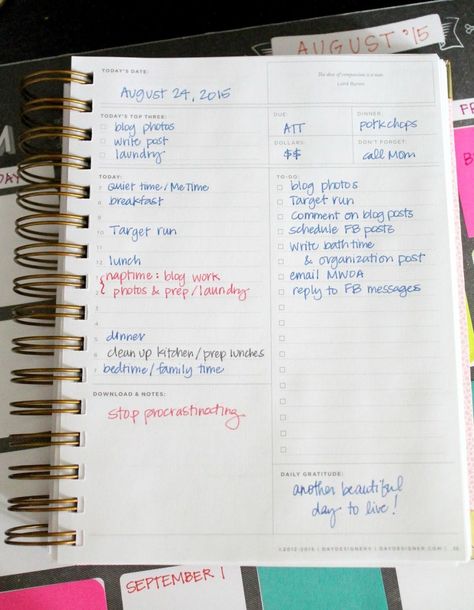 AUGUST '15
TODAY'S DATE:
August 24, 2015
The dew of compassion is a tear.
Lord Byron
TODAY'S TOP THREE:
blog photos
write post
laundry
DUE:
ATT
DINNER:
porkchops
DOLLARS:
$$
DON'T FORGET:
call Mom
TODAY:
7 quiet time/MeTime
8 breakfast
9
10 Target run
11
12 lunch
1 naptime: blog work
2 photos & prep/laundry
3
4
5 dinner
6 clean up kitchen/prep lunches
7 bedtime/family time
TO-DO:
blog photos
Target run
comment on blog posts
schedule FB posts
write bathtime
& organization post
email MWDA
reply to FB messages
DOWNLOAD & NOTES:
stop procrastinating
DAILY GRATITUDE:
another beautiful
day to live!
©2012-2015 | DAYDESIGNER® | DAYDESIGNER.COM |
SEPTEMBER 1